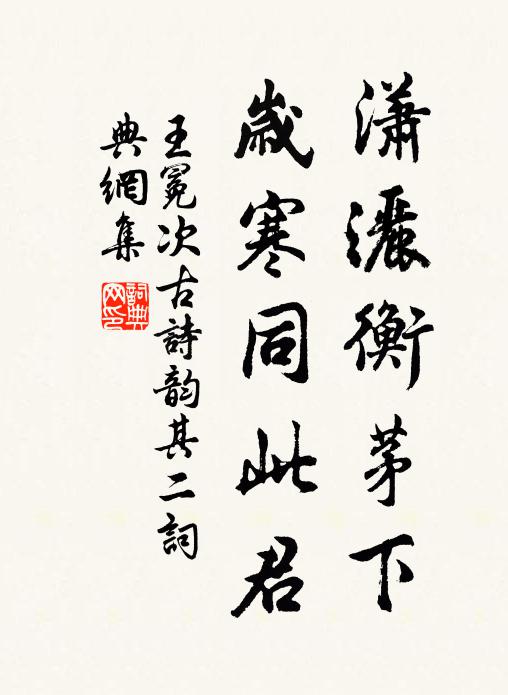 瀟灑衡茅下
歲寒同此君
王冕次古詩韵其二詞
典網集
詞典
网印